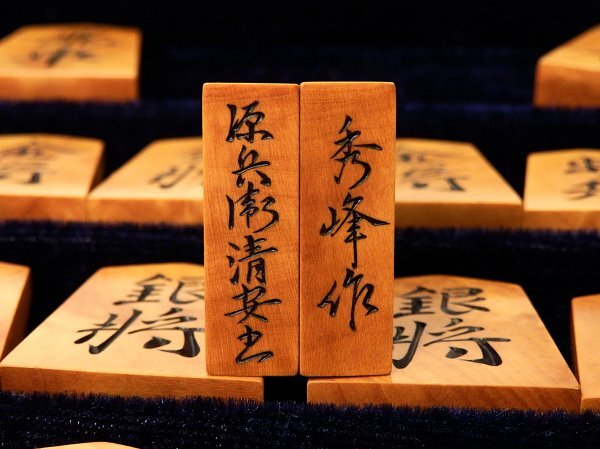 秀峰作
源兵衛清安書
銀將
銀將